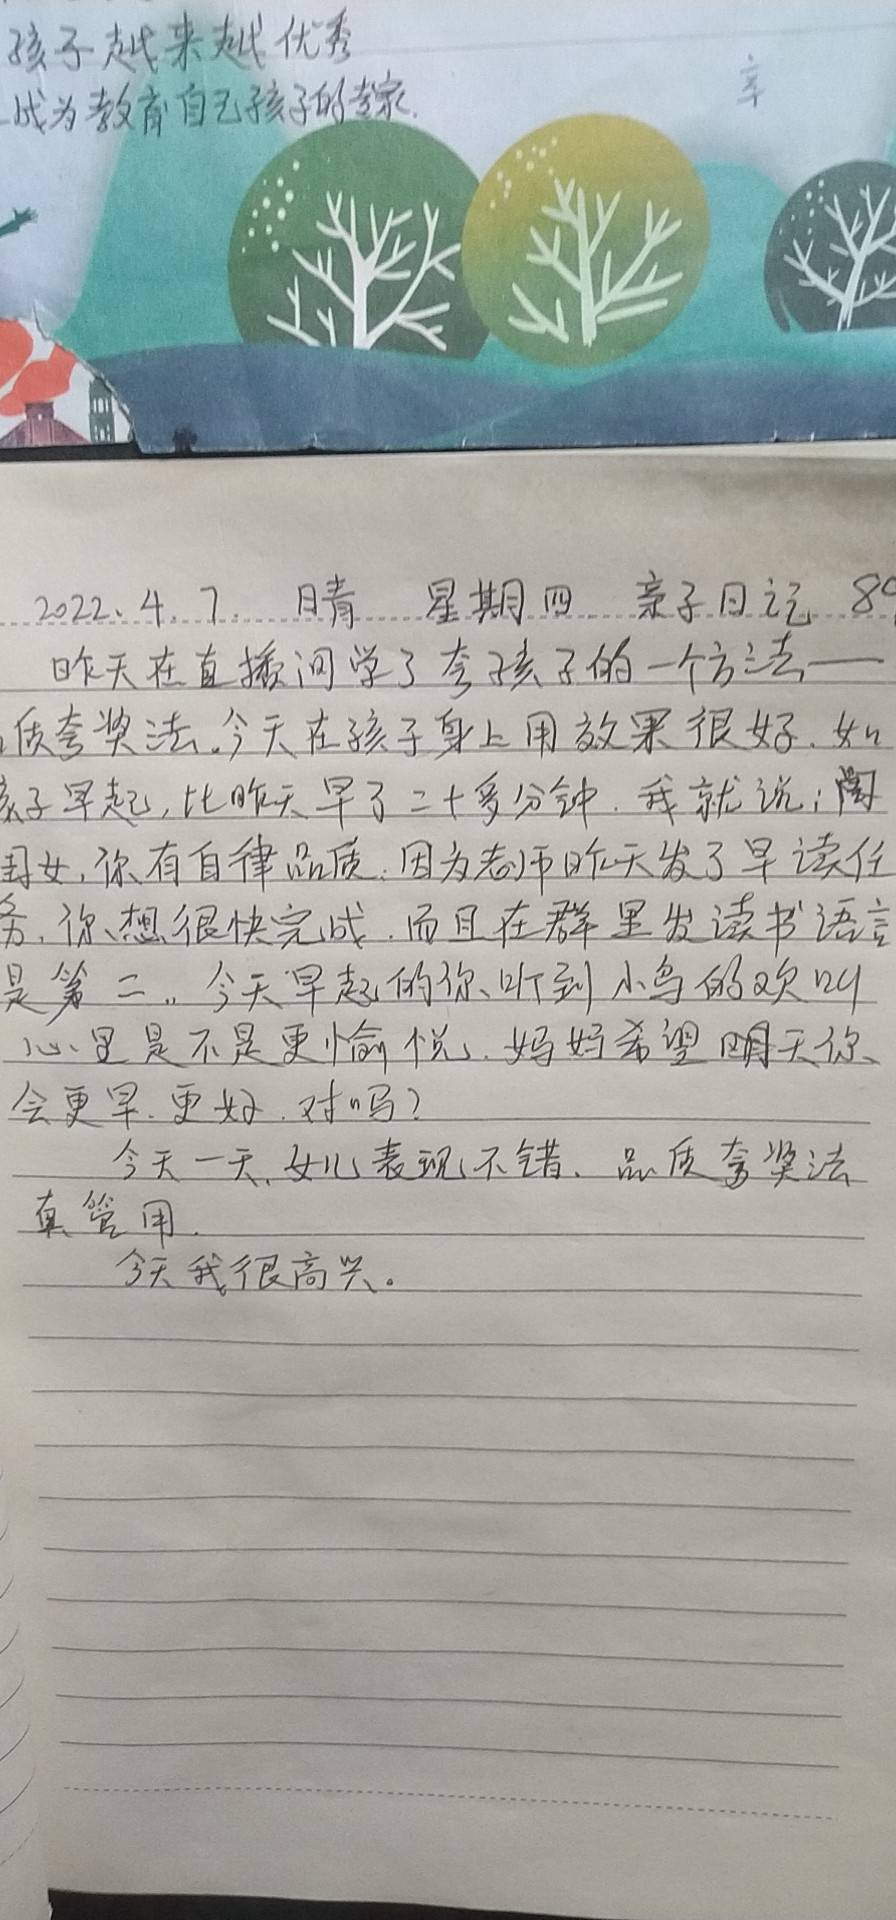 孩子越来越优秀
成为教育自己孩子的专家.
2022.4.7. 晴 星期四 亲子日记 89
昨天在直播间学了夸孩子的一个方法——
质夸奖法。今天在孩子身上用效果很好.如
孩子早起,比昨天早了二十多分钟.我就说:闺
闺女,你有自律品质.因为老师昨天发了早读任
务.你想很快完成.而且在群里发读书语言
是第二..今天早起的你、听到小鸟的欢叫
心里是不是更愉悦.妈妈希望明天你
会更早.更好.对吗?
今天一天,女儿表现不错、品质夸奖法
真管用.
今天我很高兴。